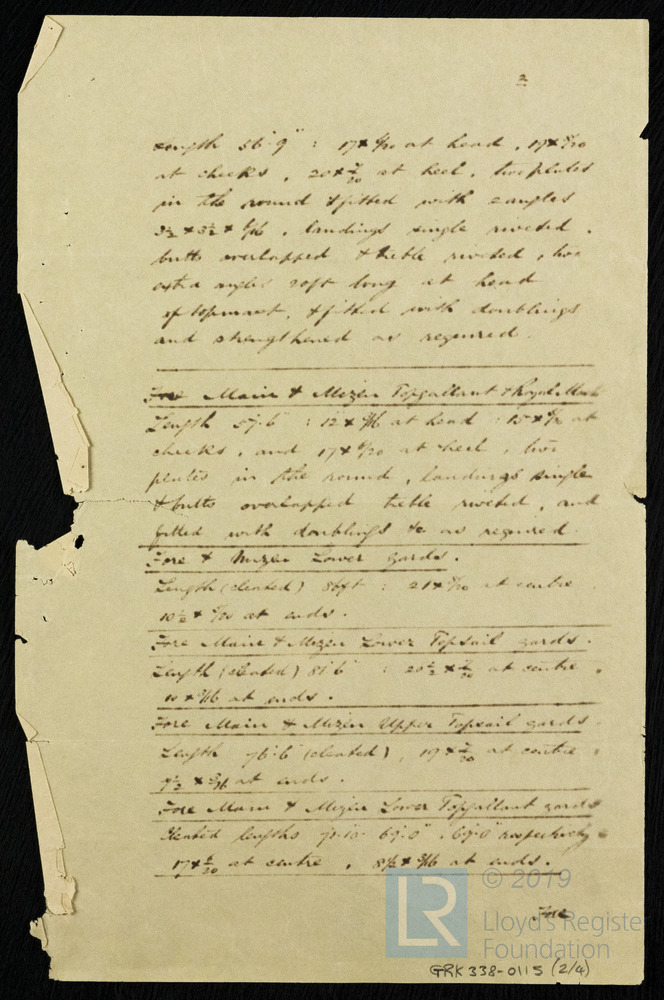 2
Length 56'.9" : 17 x 6/20 at head, 17 x 6/20
at cheeks, 20 x 7/20 at heel, two plates
in the round & fitted with 2 angles
3½ x 3½ x 6/16, landings single riveted,
butts overlapped & treble riveted, two
extra angles 20ft long at head
of topmast, & fitted with doublings
and strengthened as required.
Fore Main & Mizen Topgallant & Royal Mast
Length 57.6 : 12 x 5/16 at head : 15 x at
cheeks, and 17 x 6/20 at heel, two
plates in the round, landings single
& butts overlapped treble riveted, and
fitted with doublings &c as required.
Fore & Mizen Lower yards.
Length (cleated) 86ft : 21 x at centre
10½ x at ends.
Fore Main & Mizen Lower Topsail yards.
Length (cleated) 81'6 : 20½ x 7/20 at centre,
10 x 5/16 at ends.
Fore Main & Mizen Upper Topsail yards.
Length 76'.6 (cleated), 19 x 7/20 at centre,
9½ x 5/16 at ends.
Fore Main & Mizen Lower Topgallant yards
Cleated lengths 69'.0", 69'.0" respectively
17 x 6/20 at centre, 8½ x 5/16 at ends.
Fore
© 2019
LR
Lloyd's Register
Foundation
GRK338-0115 (2/4)